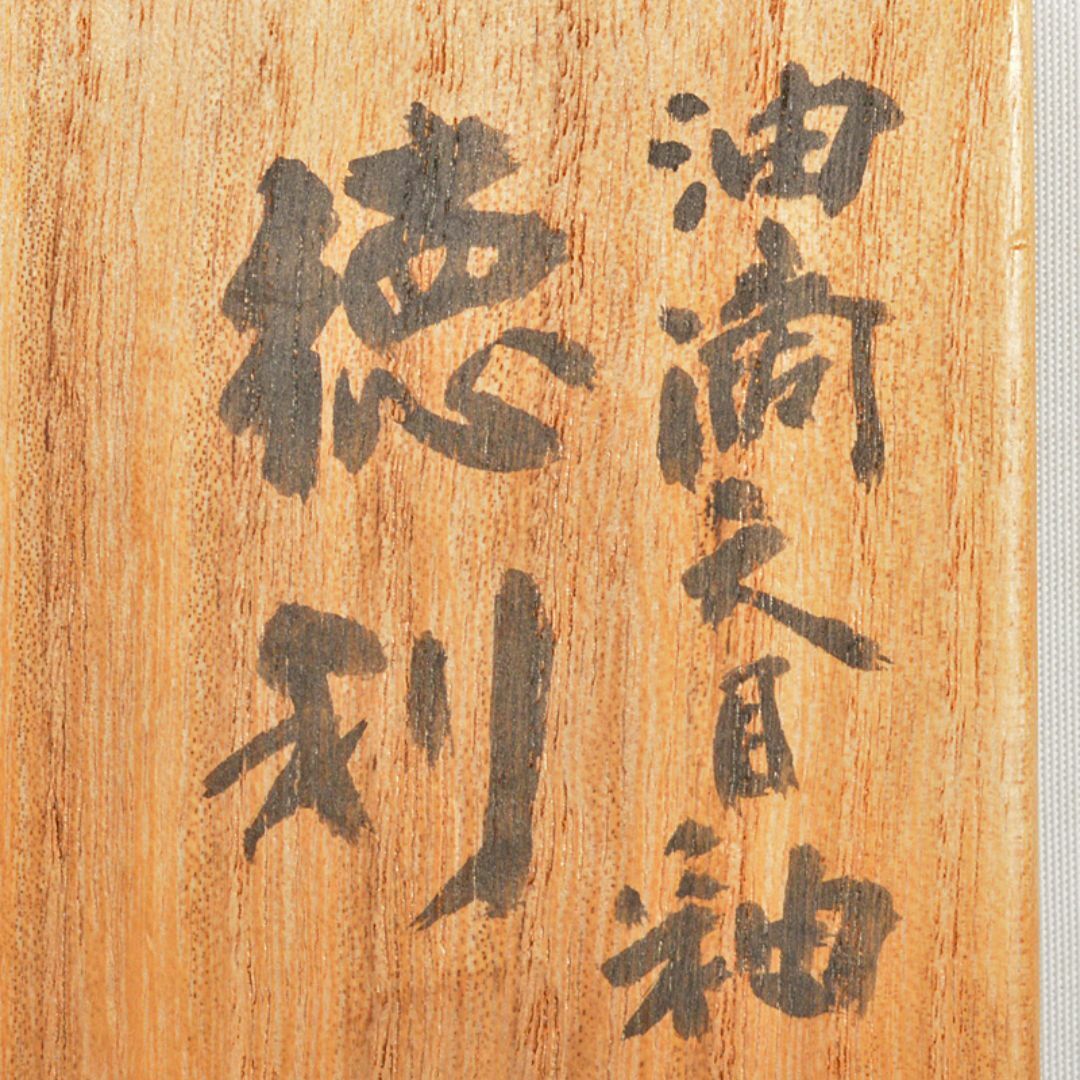 油滴天目釉
徳利